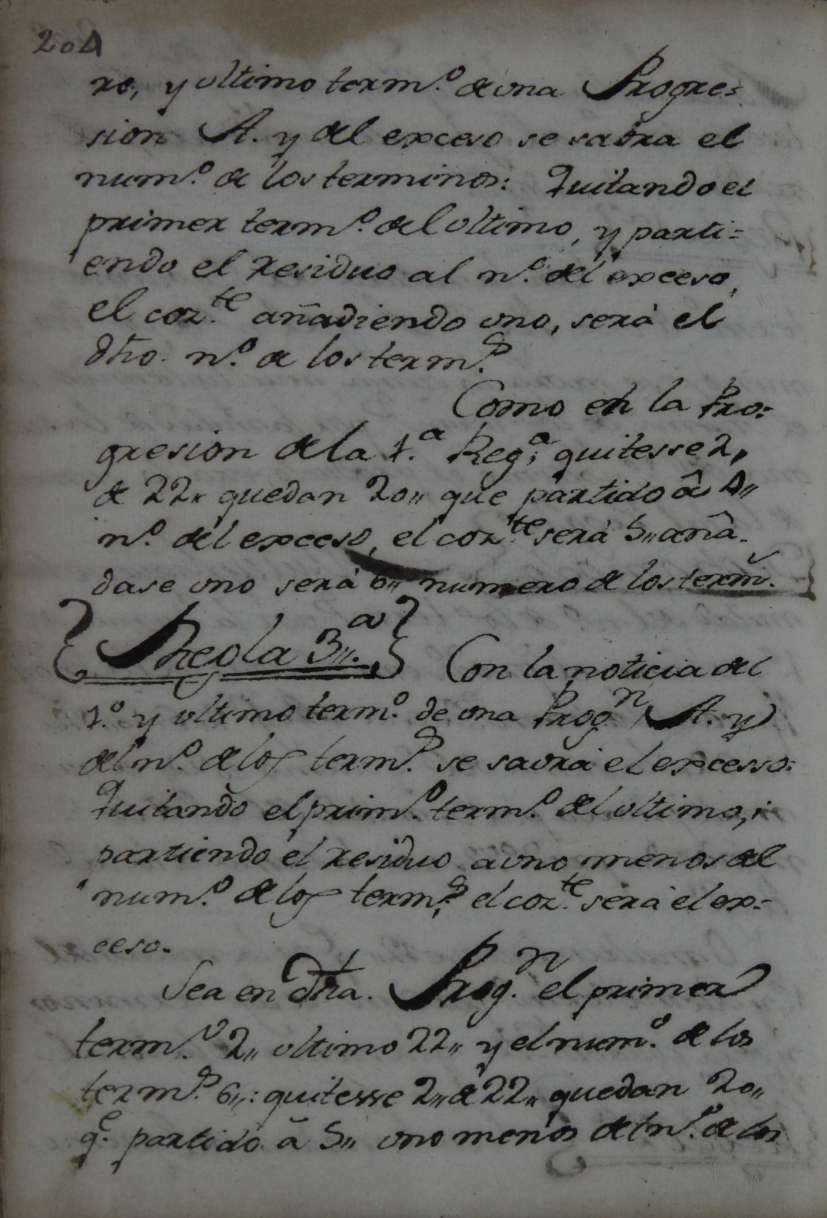 204
ro, y ultimo term.º de una Progre=
sion A. y del exceso se sabra el
num.º de los terminos: Quitando el
primer term.º del ultimo, y parti=
endo el residuo al n.º del exceso,
el coz.te añadiendo uno, será el
dho. n.º de los term.s
Como en la Pro=
gresion de la 1.ª Reg.ª quitesse 2,,
de 22,, quedan 20,, que partido â 4,,
n.º del exceso, el coz.te será 5,, aña-
dase uno será 6,, numero de los term.s
Regla 3,,ª Con la noticia del
1.º y ultimo term.º de una Prog.n A. y
del n.º de los term.s se sabrá el excesso:
Quitando el prim.º term.º del ultimo, i
partiendo el residuo a uno menos del
num.º de los term.s el coz.te será el ex=
ceso.
Sea en dha. Prog.n el primer
term.º 2,, ultimo 22,, y el num.º de los
term.s 6,,: quitesse 2,, de 22,, quedan 20,,
q.e partido â 5,, uno menos del n.º de los